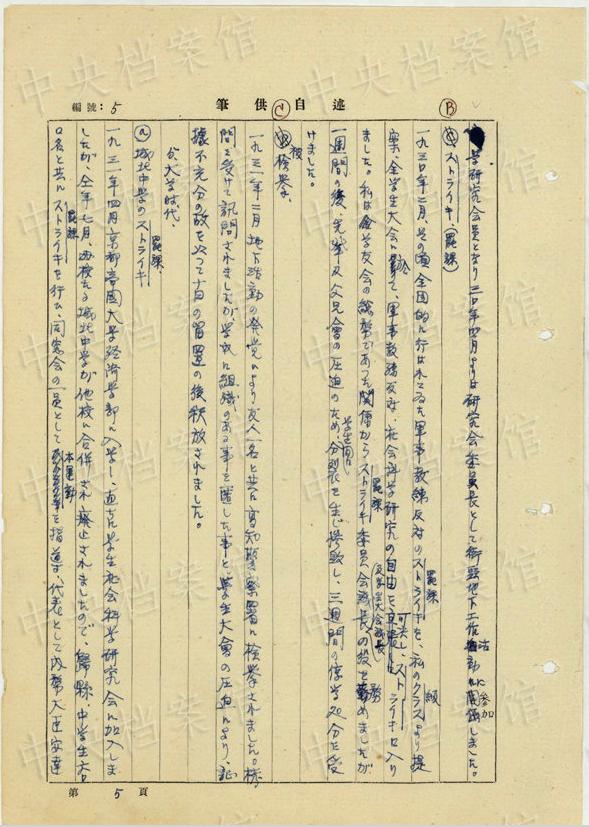 編號：5
述自供筆
Ⓑ
学研究会員となり三〇年四月よりは研究会委員長として街頭地下工作活動に参加関係しました。
ストライキ（罷課）
一九三〇年二月、その頃全国的に行はれてゐた軍事教練反対のストライキ罷課を、私のクラス級より提
案、全学生大会に於て、軍事教練反対、社会科学研究の自由を可決しストライキに入り
ました。私は学友会の総務であつた関係からストライキ罷課委員会議長及学生大会議長の役を務めましたが
一週間の後、先輩及父兄會の圧迫のため、学生間に分裂を生じ惨敗し、三週間の停学処分を受
けました。
Ⓒ 被検挙
一九三一年二月 地下活動の発覚により友人一名と共に高知警察署に検挙されました。拷
問を受けて訊問されましたが、学校に組織のある事を匿した事と、学生大會の圧迫により、証
據不充分の故を以つて十日の留置の後釈放されました。
大学時代、
ⓐ 城北中学のストライキ罷課
一九三一年四月京都帝國大学経済学部に入学し、直ちに学生社会科学研究会に加入しま
したが、仝年七月、母校なる城北中学が他校に合併され廃止されましたので、歸縣、中学生六
〇名と共にストライキ罷課を行ひ、同窓会の一員として本運動を指導、代表として内務大臣安達
第 5 頁
中央档案馆